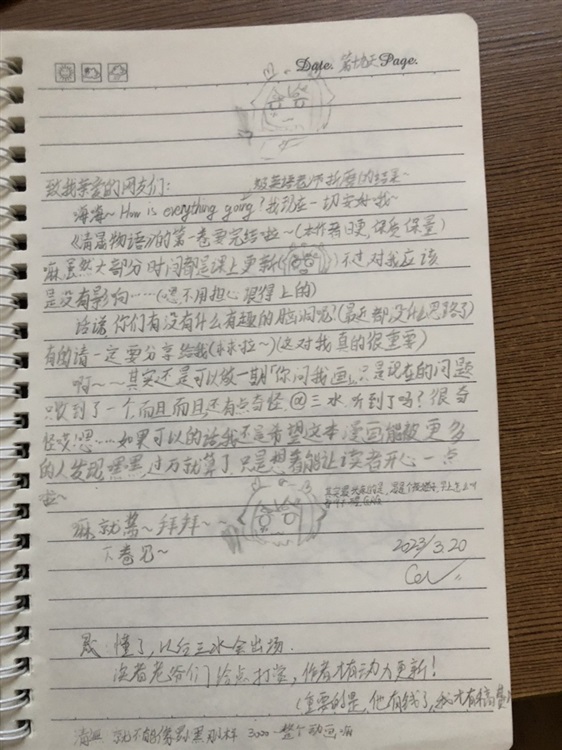 Date. 第七天 Page.
致我亲爱的网友们: 被英语老师折磨的结果~
海海~ How is everything going? 我现在一切安好哦~
《清晟物语》的第一卷要完结啦~(本作善日更,保质保量)
麻虽然大部分时间都是课上更新 不过对我应该
是没有影响……(嗯不用担心跟得上的)
话说,你们有没有什么有趣的脑洞呢?(最近都没什么思路了)
有的请一定要分享给我(求求啦~)(这对我真的很重要)
啊~~其实还是可以做一期「你问我画」,只是现在的问题
只收到了一个,而且而且,还有点奇怪,@三水,听到了吗?很奇
怪哎!嗯……如果可以的话我还是希望这本漫画能被更多
的人发现,嘿嘿,过万就算了,只是想着能让读者开心一点
啦~
麻,就酱~拜拜~
下卷见~
2023/3.20
懂了,以后三水会出场.
读者老爷们给点打赏,作者才有动力更新!
(重要的是,他有钱了,我才有稿费)
就不能像 那样 3000 整个动画